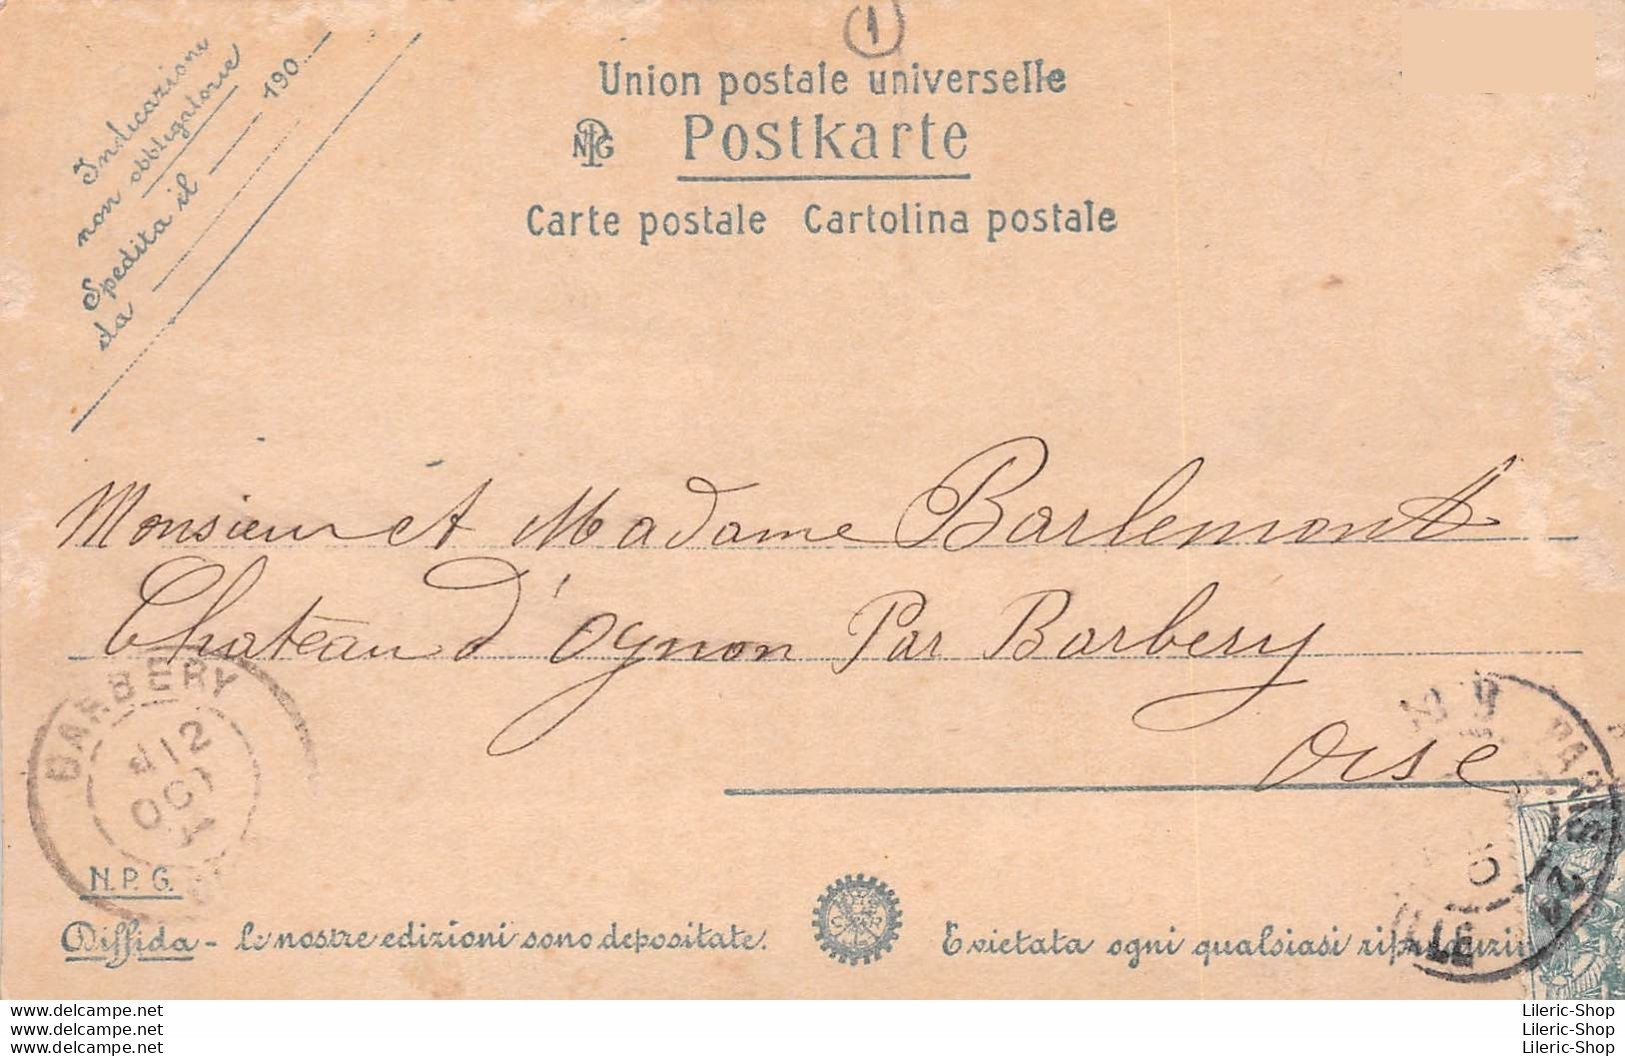 1
Indicazione
non obbligatorie
Spedita il 190
da
Union postale universelle
NPG Postkarte
Carte postale Cartolina postale
Monsieur et Madame Barlemont
Chateau d'Ognon Par Barbery
Oise
BARBERY
12
OCT
PARIS
12
N.P.G.
Diffida - Le nostre edizioni sono depositate. E vietata ogni qualsiasi
www.delcampe.net
www.delcampe.net
www.delcampe.net
Lileric-Shop
Lileric-Shop
Lileric-Shop